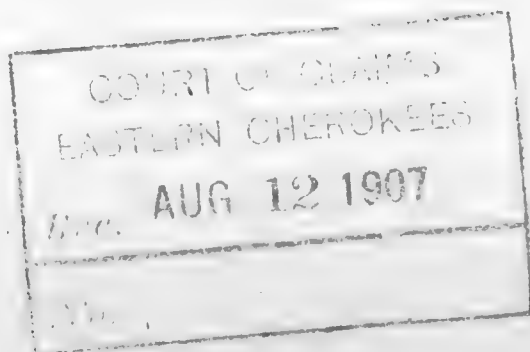 COURT OF CLAIMS
EASTERN CHEROKEES
Rec. AUG 12 1907
No.